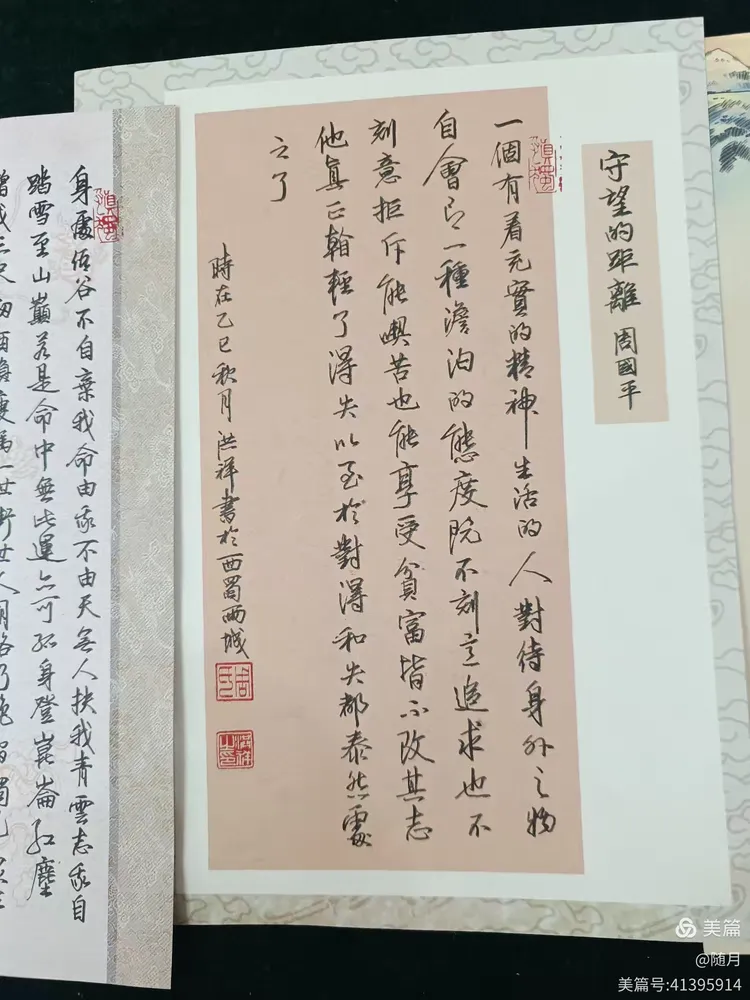 守望的距離 周國平
一個有着充實的精神生活的人對待身外之物
自會有一種澹泊的態度既不刻意追求也不
刻意拒斥能喫苦也能享受貧富皆不改其志
他真正看輕了得失以至於對得和失都泰然處
之了
時在乙巳秋月洪祥書於西蜀雨城
身處低谷不自棄我命由我不由天無人扶我青雲志我自
踏雪至山巔若是命中無此運亦可孤身登崑崙紅塵
美篇
@随月
美篇号:41395914